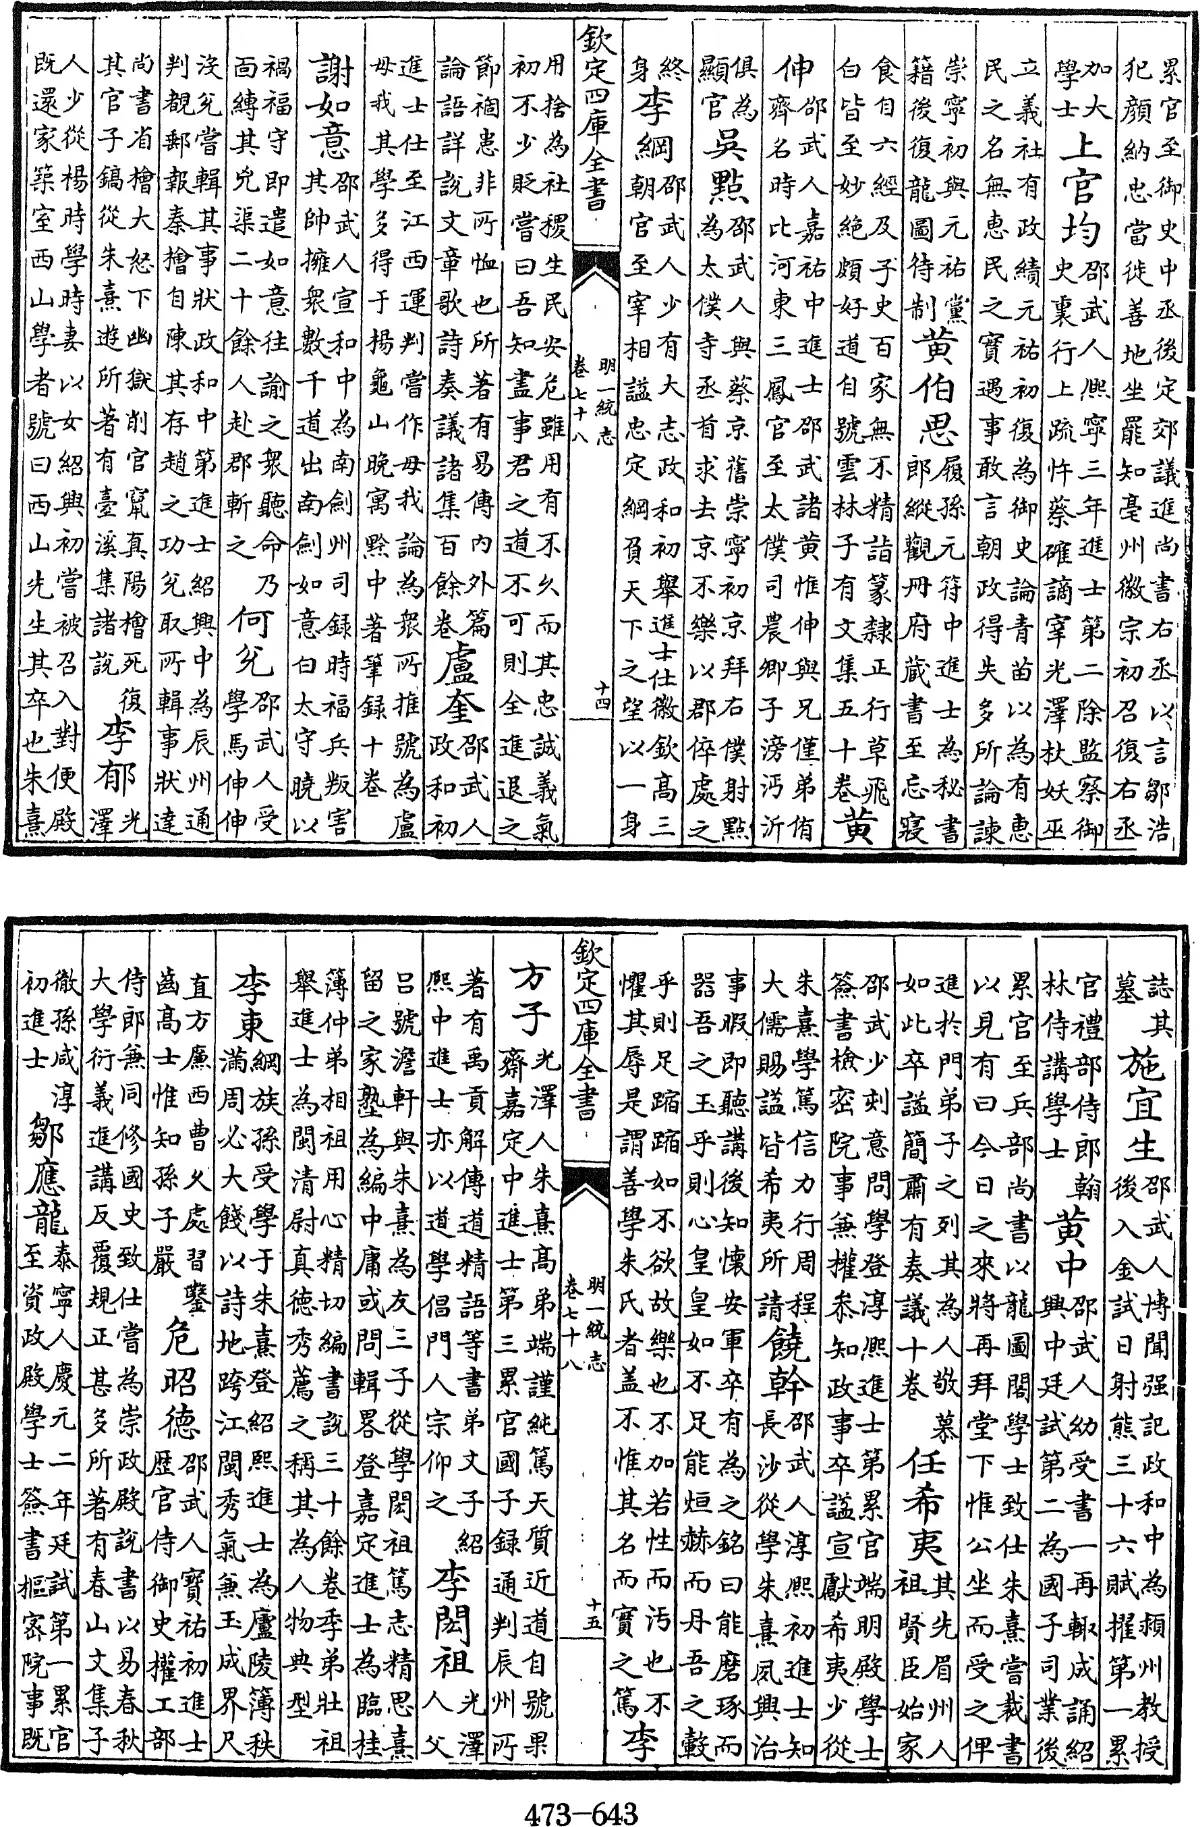 累官至御史中丞後定郊議進尚書右丞以言鄒浩
犯顏納忠當徙善地坐罷知亳州徽宗初召復右丞
加大
學士
上官均
邵武人熙寧三年進士第二除監察御
史裏行上疏忤蔡確謫宰光澤杖妖巫
立義社有政績元祐初復為御史論青苗以為有惠
民之名無惠民之實遇事敢言朝政得失多所論諫
崇寧初與元祐黨
籍後復龍圖待制
黄伯思
履孫元符中進士為秘書
郎縱觀冊府藏書至忘寢
食自六經及子史百家無不精詣篆隸正行草飛
白皆至妙絶頗好道自號雲林子有文集五十卷
黄
伸
邵武人嘉祐中進士邵武諸黄惟伸與兄僅弟侑
齊名時比河東三鳳官至太僕司農卿子滂沔沂
俱為
顯官
吳點
邵武人與蔡京舊崇寧初京拜右僕射點
為太僕寺丞首求去京不樂以郡倅處之
終
身
李綱
邵武人少有大志政和初舉進士仕徽欽髙三
朝官至宰相謚忠定綱負天下之望以一身
欽定四庫全書
明一統志
卷七十八
十四
用捨為社稷生民安危雖用有不久而其忠誠義氣
初不少貶嘗曰吾知盡事君之道不可則全進退之
節禍患非所恤也所著有易傳内外篇
論語詳説文章歌詩奏議諸集百餘卷
盧奎
邵武人
政和初
進士仕至江西運判嘗作毋我論為衆所推號為盧
毋我其學多得于楊龜山晚寓黔中著筆録十卷
謝如意
邵武人宣和中為南劍州司録時福兵叛害
其帥擁衆數千道出南劍如意白太守曉以
禍福守即遣如意往諭之衆聽命乃
面縛其兇渠二十餘人赴郡斬之
何兊
邵武人受
學馬伸伸
沒兊嘗輯其事狀政和中第進士紹興中為辰州通
判覩郵報秦檜自陳其存趙之功兊取所輯事狀達
尚書省檜大怒下幽獄削官竄真陽檜死復
其官子鎬從朱熹遊所著有臺溪集諸説
李郁
光
澤
人少從楊時學時妻以女紹興初嘗被召入對便殿
既還家築室西山學者號曰西山先生其卒也朱熹
誌其
墓
施宜生
邵武人博聞强記政和中為潁州教授
後入金試日射熊三十六賦擢第一累
官禮部侍郎翰
林侍講學士
黄中
邵武人幼受書一再輙成誦紹
興中廷試第二為國子司業後
累官至兵部尚書以龍圖閣學士致仕朱熹嘗裁書
以見有曰今日之來將再拜堂下惟公坐而受之俾
進於門弟子之列其為人敬慕
如此卒謚簡肅有奏議十卷
任希夷
其先眉州人
祖賢臣始家
邵武少刻意問學登淳熙進士第累官端明殿學士
簽書樞密院事兼權叅知政事卒謚宣獻希夷少從
朱熹學篤信力行周程
大儒賜謚皆希夷所請
饒幹
邵武人淳熙初進士知
長沙從學朱熹夙興治
事暇即聽講後知懷安軍卒有為之銘曰能磨琢而
器吾之玉乎則心皇皇如不足能烜赫而丹吾之轂
乎則足蹜蹜如不欲故樂也不加若性而汚也不
懼其辱是謂善學朱氏者盖不惟其名而實之篤
李
欽定四庫全書
明一統志
卷七十八
十五
方子
光澤人朱熹髙弟端謹純篤天質近道自號果
齋嘉定中進士第三累官國子録通判辰州所
著有禹貢解傳道精語等書弟文子紹
熙中進士亦以道學倡門人宗仰之
李閎祖
光澤
人父
吕號澹軒與朱熹為友三子從學閎祖篤志精思熹
留之家塾為編中庸或問輯畧登嘉定進士為臨桂
簿仲弟相祖用心精切編書説三十餘卷季弟壯祖
舉進士為閩清尉真德秀薦之稱其為人物典型
李東
綱族孫受學于朱熹登紹熙進士為廬陵簿秩
滿周必大餞以詩地跨江閩秀氣兼玉成界尺
直方廉西曹久處習鑿
齒髙士惟知孫子嚴
危昭德
邵武人寳祐初進士
歴官侍御史權工部
侍郎兼同修國史致仕嘗為崇政殿説書以易春秋
大學衍義進講反覆規正甚多所著有春山文集子
徹孫咸淳
初進士
鄒應龍
泰寧人慶元二年廷試第一累官
至資政殿學士簽書樞宻院事既
473-643